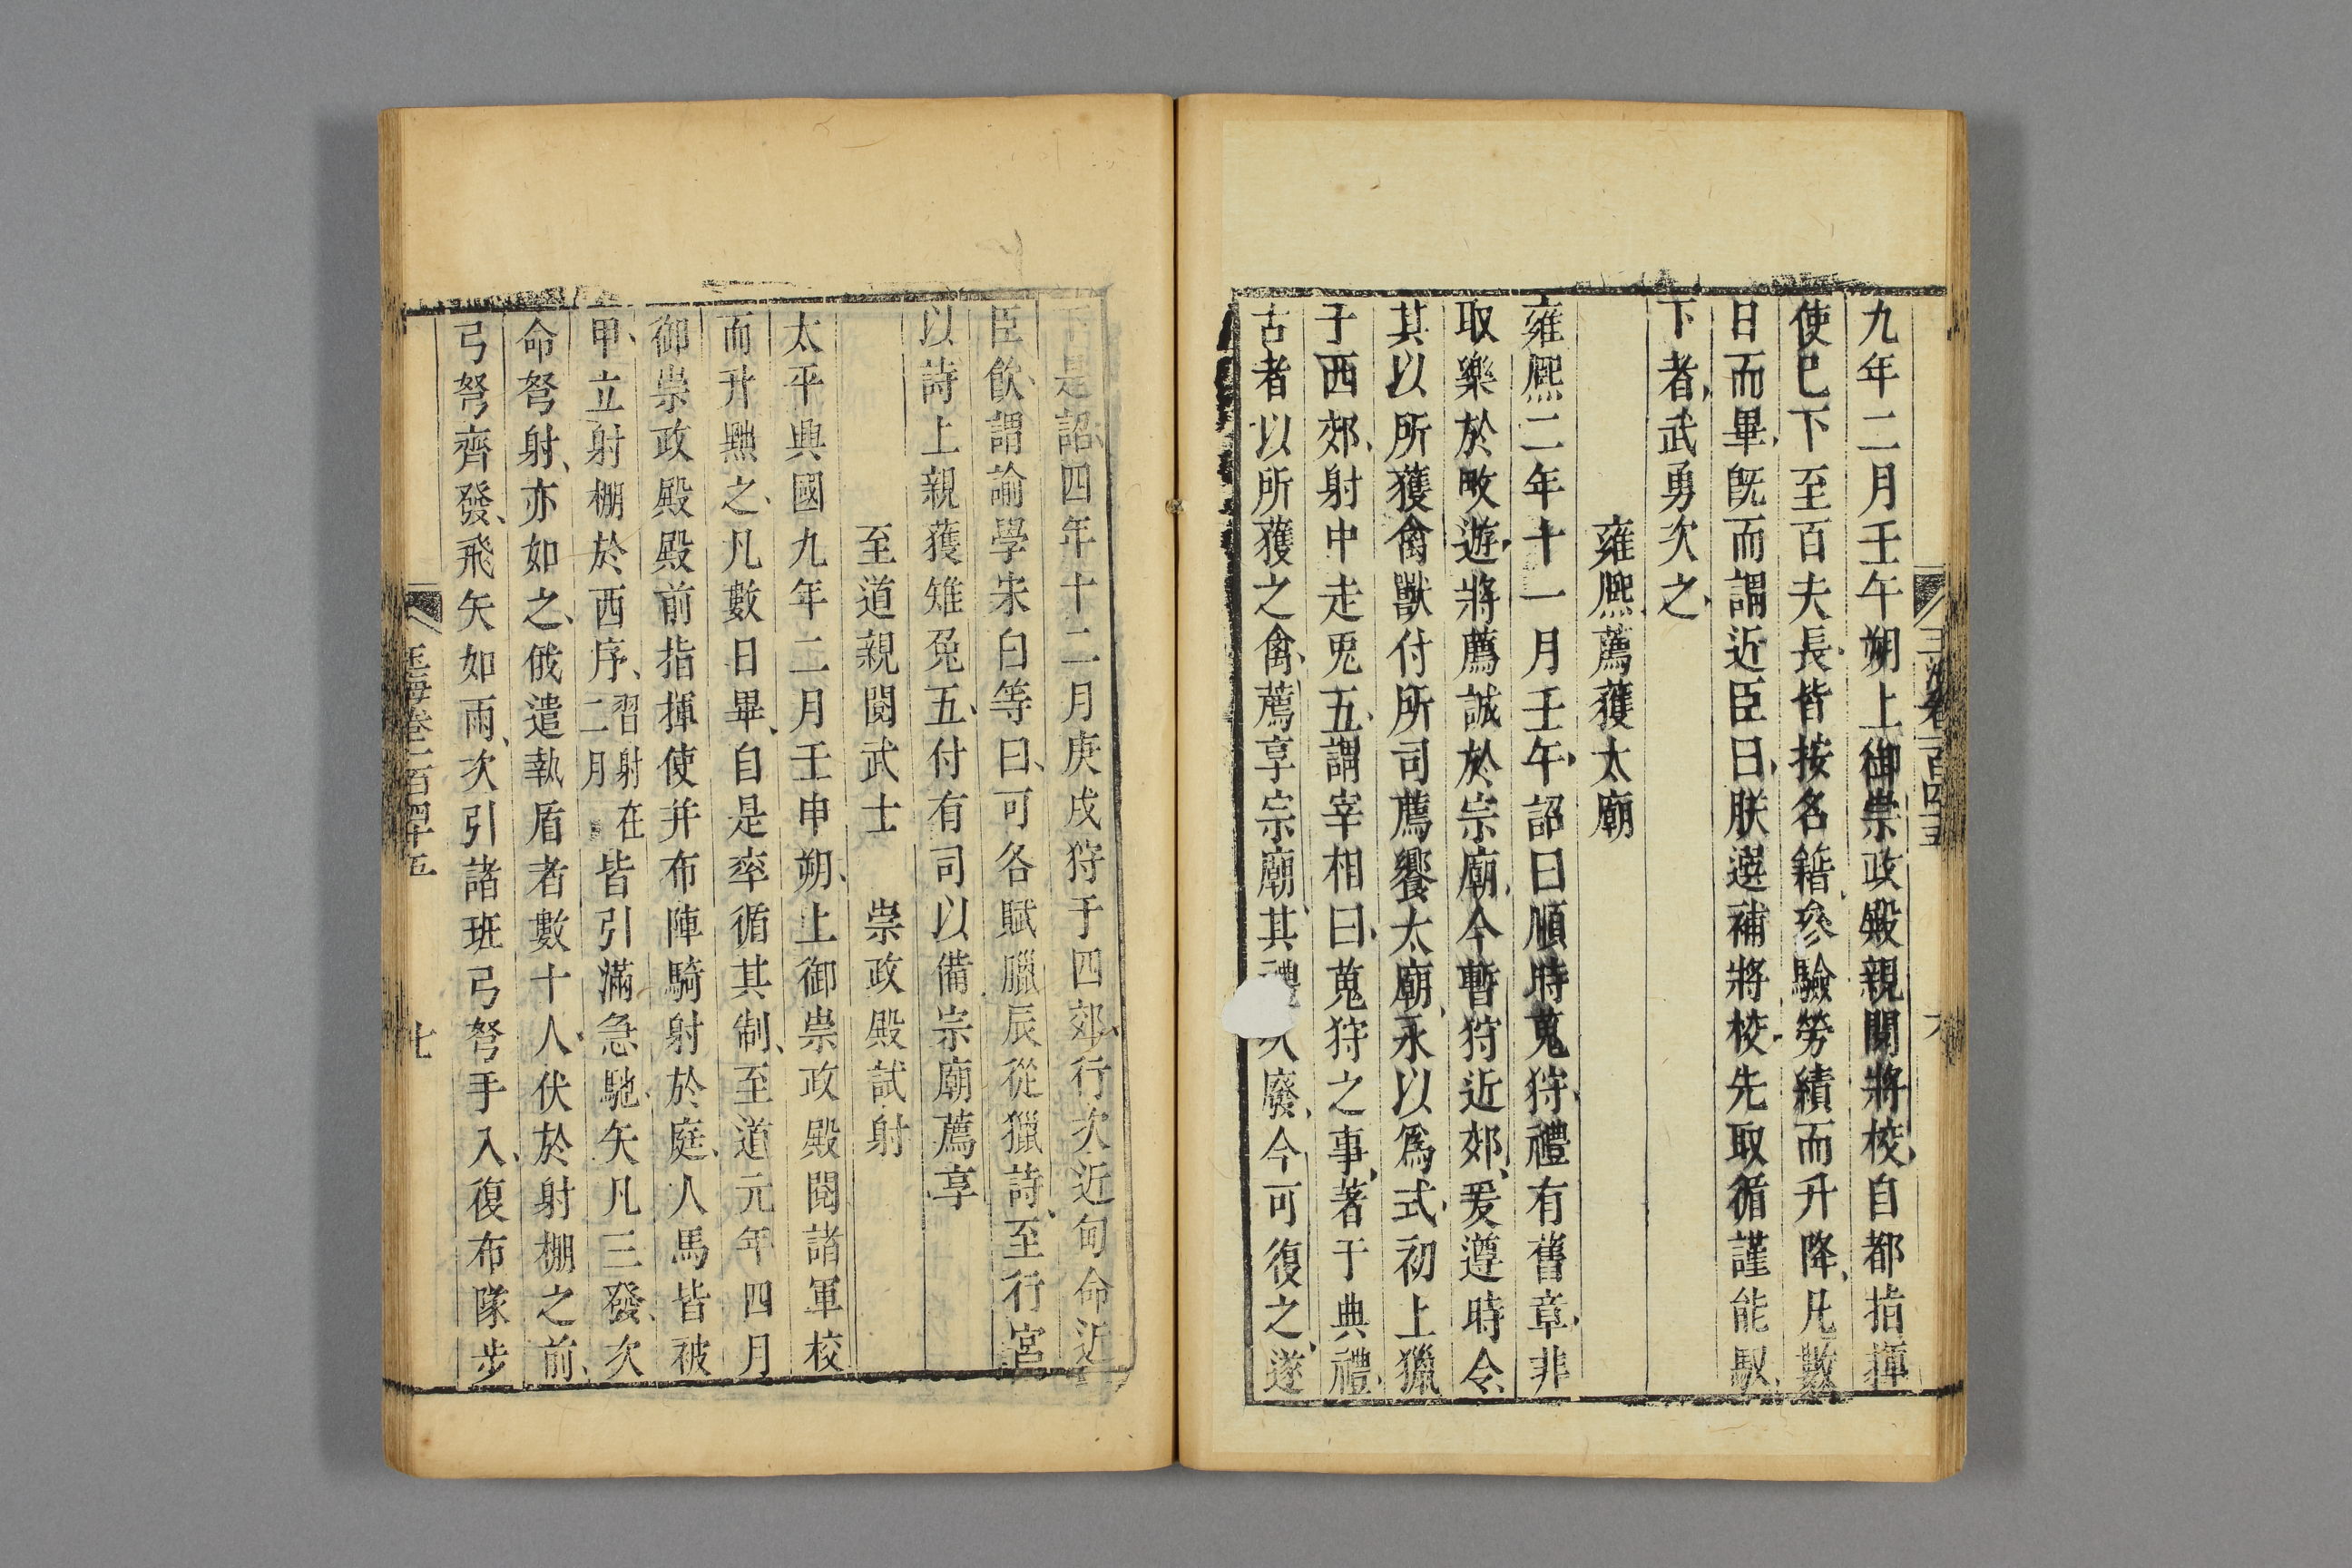 九年二月壬午朔上御崇政殿親閱將校自都指揮
使已下至百夫長皆按名籍參驗勞績而升降凡數
日而畢旣而謂近臣曰朕選補將校先取循謹能馭
下者武勇次之
雍熙薦獲太廟
雍熙二年十一月壬午詔曰順時蒐狩禮有舊章非
取樂於畋遊將薦誠於宗廟今暫狩近郊爰遵時令
其以所獲禽獸付所司薦饗太廟永以爲式初上獵
于西郊射中走兎五謂宰相曰蒐狩之事著于典禮
古者以所獲之禽薦享宗廟其禮久廢今可復之遂
下是詔四年十二月庚戌狩于四郊行次近甸命近
臣飮謂諭學宋白等曰可各賦臘辰從獵詩至行宮
以詩上親獲雉兎五付有司以備宗廟薦享
至道親閱武士 崇政殿試射
太平興國九年二月壬申朔上御崇政殿閱諸軍校
而升黜之凡數日畢自是率循其制至道元年四月
御崇政殿殿前指揮使并布陣騎射於庭人馬皆被
甲立射棚於西序習射在二月皆引滿急馳矢凡三發次
命弩射亦如之俄遣執盾者數十人伏於射棚之前
弓弩齊發飛矢如雨次引諸班弓弩手入復布隊步
玉海卷一百四十五
七